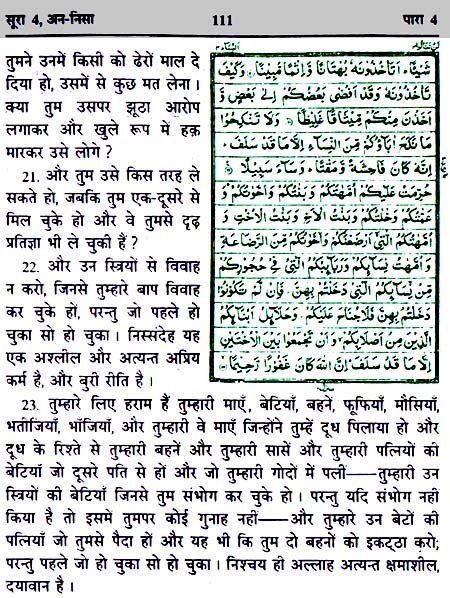 सूरा 4, अन-निसा 111 पारा 4
तुमने उनमें किसी को ढेरों माल दे
दिया हो, उसमें से कुछ मत लेना।
क्या तुम उसपर झूठा आरोप
लगाकर और खुले रूप में हक़
मारकर उसे लोगे ?
21. और तुम उसे किस तरह ले
सकते हो, जबकि तुम एक-दूसरे से
मिल चुके हो और वे तुमसे दृढ़
प्रतिज्ञा भी ले चुकी हैं ?
22. और उन स्त्रियों से विवाह
न करो, जिनसे तुम्हारे बाप विवाह
कर चुके हों, परन्तु जो पहले हो
चुका सो हो चुका। निस्संदेह यह
एक अश्लील और अत्यन्त अप्रिय
कर्म है, और बुरी रीति है।
شَيْئًا أَتَأْخُذُونَهُ بُهْتَانًا وَإِثْمًا مُّبِينًا وَكَيْفَ
تَأْخُذُونَهُ وَقَدْ أَفْضَى بَعْضُكُمْ إِلَى بَعْضٍ وَ
أَخَذْنَ مِنكُم مِّيثَاقًا غَلِيظًا وَلَا تَنكِحُوا
مَا نَكَحَ آبَاؤُكُم مِّنَ النِّسَاءِ إِلَّا مَا قَدْ سَلَفَ
إِنَّهُ كَانَ فَاحِشَةً وَمَقْتًا وَسَاءَ سَبِيلًا
حُرِّمَتْ عَلَيْكُمْ أُمَّهَاتُكُمْ وَبَنَاتُكُمْ وَأَخَوَاتُكُمْ وَ
عَمَّاتُكُمْ وَخَالَاتُكُمْ وَبَنَاتُ الْأَخِ وَبَنَاتُ الْأُخْتِ وَ
أُمَّهَاتُكُمُ الَّتِي أَرْضَعْنَكُمْ وَأَخَوَاتُكُم مِّنَ الرَّضَاعَةِ
وَأُمَّهَاتُ نِسَائِكُمْ وَرَبَائِبُكُمُ الَّتِي فِي حُجُورِكُم
مِّن نِّسَائِكُمُ الَّتِي دَخَلْتُم بِهِنَّ فَإِن لَّمْ تَكُونُوا
دَخَلْتُم بِهِنَّ فَلَا جُنَاحَ عَلَيْكُمْ وَحَلَائِلُ أَبْنَائِكُمُ
الَّذِينَ مِنْ أَصْلَابِكُمْ وَأَن تَجْمَعُوا بَيْنَ الْأُخْتَيْنِ
إِلَّا مَا قَدْ سَلَفَ إِنَّ اللَّهَ كَانَ غَفُورًا رَّحِيمًا
23. तुम्हारे लिए हराम हैं तुम्हारी माएँ, बेटियाँ, बहनें, फूफियाँ, मौसियाँ,
भतीजियाँ, भाँजियाँ, और तुम्हारी वे माएँ जिन्होंने तुम्हें दूध पिलाया हो और
दूध के रिश्ते से तुम्हारी बहनें और तुम्हारी सासें और तुम्हारी पत्नियों की
बेटियाँ जो दूसरे पति से हों और जो तुम्हारी गोदों में पलीं——तुम्हारी उन
स्त्रियों की बेटियाँ जिनसे तुम संभोग कर चुके हो। परन्तु यदि संभोग नहीं
किया है तो इसमें तुमपर कोई गुनाह नहीं——और तुम्हारे उन बेटों की
पत्नियाँ जो तुमसे पैदा हों और यह भी कि तुम दो बहनों को इकट्ठा करो;
परन्तु पहले जो हो चुका सो हो चुका। निश्चय ही अल्लाह अत्यन्त क्षमाशील,
दयावान है।